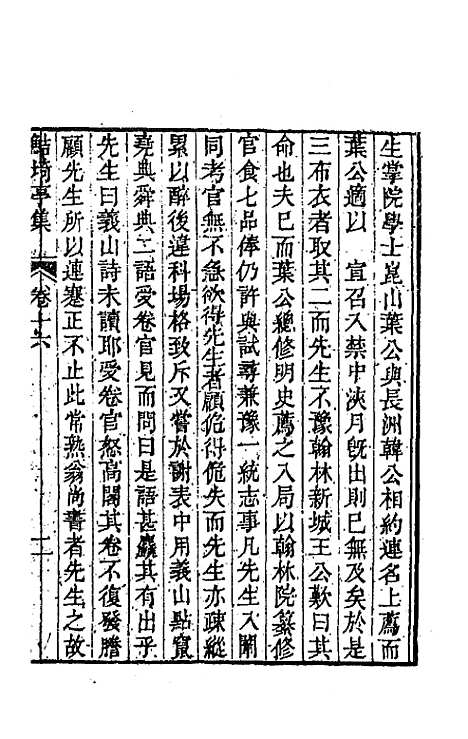 生掌院學士崑山葉公與長洲韓公相約連名上薦而
葉公適以　宣召入禁中浹月旣出則已無及矣於是
三布衣者取其二而先生不豫翰林新城王公歎曰其
命也夫已而葉公總修明史薦之入局以翰林院纂修
官食七品俸仍許與試尋兼豫一統志事凡先生入闈
同考官無不急欲得先生者顧佹得佹失而先生亦疎縱
累以醉後違科場格致斥又嘗於謝表中用義山點竄
堯典舜典二語受卷官見而問曰是語甚麤其有出乎
先生曰義山詩未讀耶受卷官怒高閣其卷不復發謄
顧先生所以連蹇正不止此常熟翁尚書者先生之故
鮚埼亭集　卷十六　二